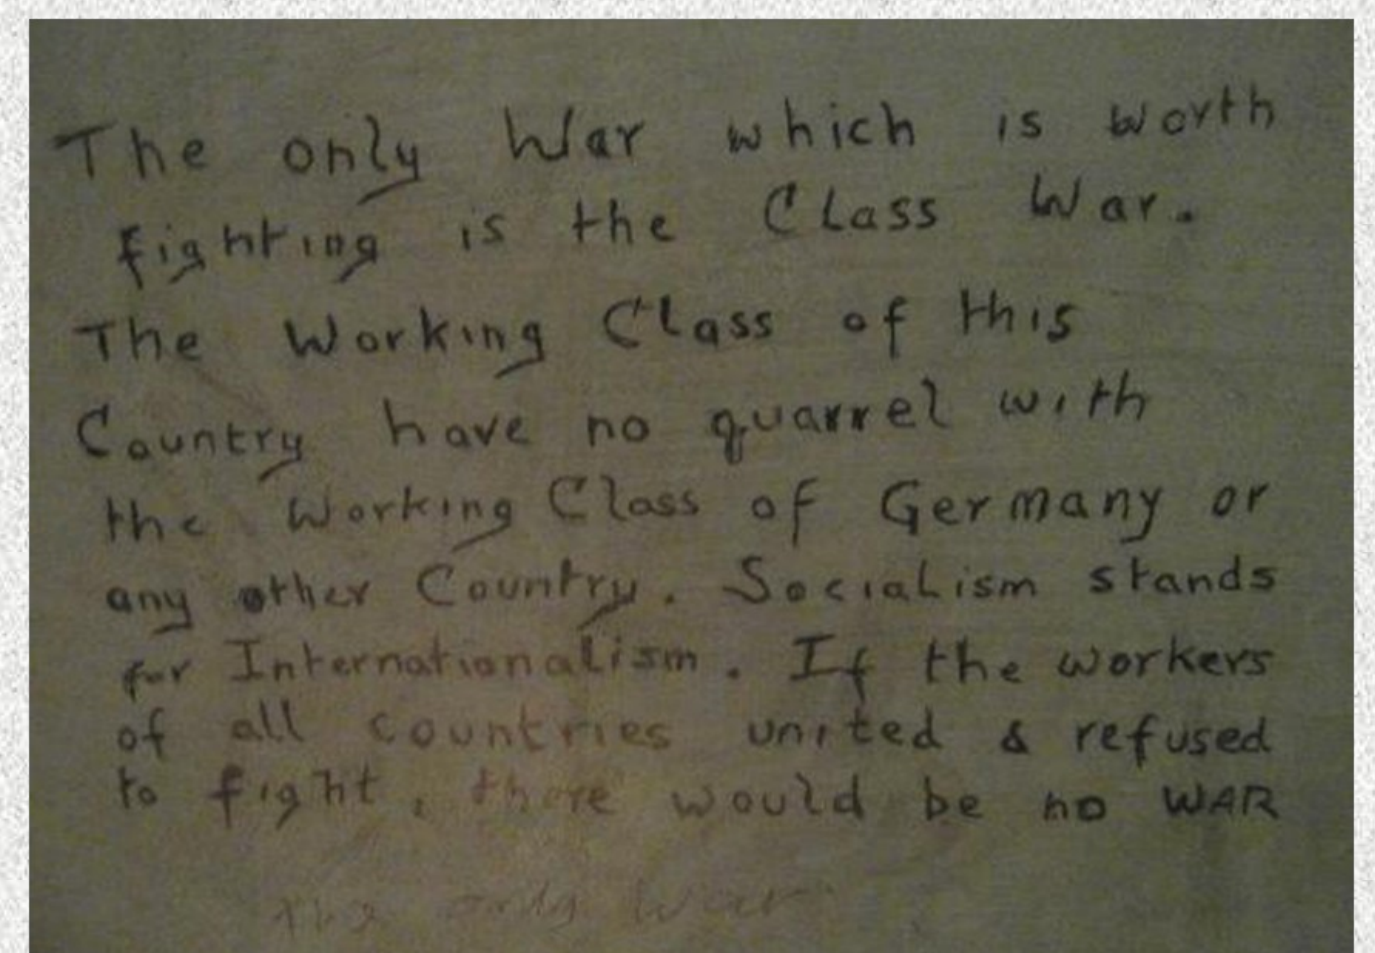 The only War which is worth
fighting is the Class War.
The Working Class of this
Country have no quarrel with
the Working Class of Germany or
any other Country. Socialism stands
for Internationalism. If the workers
of all countries united & refused
to fight, there would be no WAR
The only War